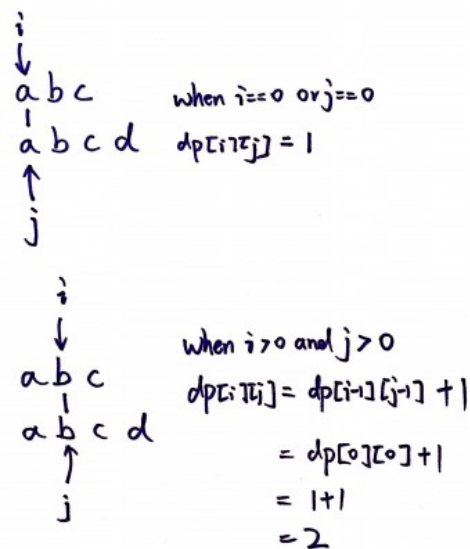 i
a b c
a b c d
j
when i==0 or j==0
dp[i][j] = 1
i
a b c
a b c d
j
when i>0 and j>0
dp[i][j] = dp[i-1][j-1] + 1
= dp[0][0]+1
= 1+1
=2